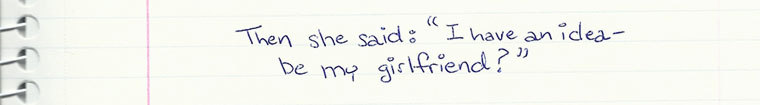 Then she said: "I have an idea–
be my girlfriend?"